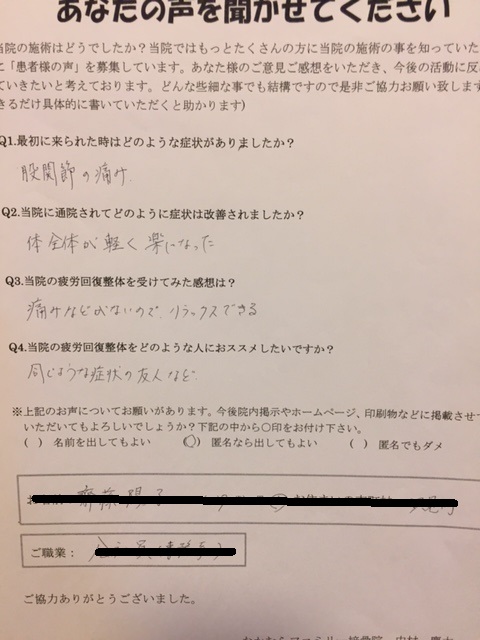 あなたの声を聞かせてください
当院の施術はどうでしたか？当院ではもっとたくさんの方に当院の施術の事を知っていた
に「患者様の声」を募集しています。あなた様のご意見ご感想をいただき、今後の活動に反
ていきたいと考えております。どんな些細な事でも結構ですので是非ご協力お願い致しま
きるだけ具体的に書いていただくと助かります)
Q1.最初に来られた時はどのような症状がありましたか？
股関節の痛み
Q2.当院に通院されてどのように症状は改善されましたか？
体全体が軽く楽になった
Q3.当院の疲労回復整体を受けてみた感想は？
痛みなどがないので、リラックスできる
Q4.当院の疲労回復整体をどのような人におススメしたいですか？
同じような症状の友人など
※上記のお声についてお願いがあります。今後院内掲示やホームページ、印刷物などに掲載させ
いただいてもよろしいでしょうか？下記の中から○印をお付け下さい。
( ) 名前を出してもよい (○) 匿名なら出してもよい ( ) 匿名でもダメ
ご職業：
ご協力ありがとうございました。